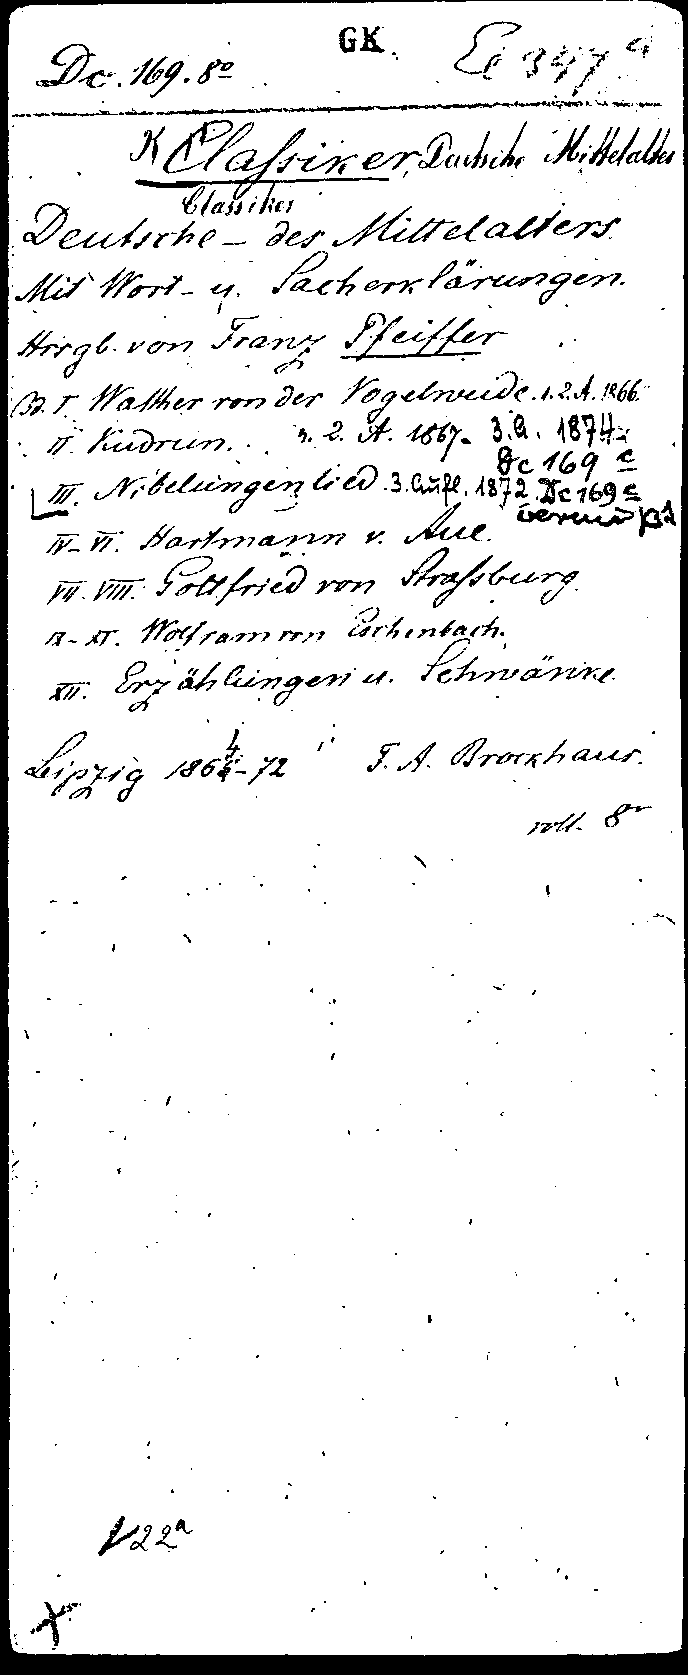 GK
Dc. 169. 8º
Ee 347 a
K Classiker, Deutsche Mittelalter
Classiker
Deutsche – des Mittelalters.
Mit Wort- u. Sacherklärungen.
Hrsgb. von Franz Pfeiffer
Bd. I. Walther von der Vogelweide. 2. A. 1866.
II. Kudrun. 2. A. 1867. 3. A. 1874.
Dc 169 c
III. Nibelungenlied. 3. Aufl. 1872. Dc 169 c
IV–VI. Hartmann v. Aue.
VII. VIII. Gottfried von Strassburg.
IX–XI. Wolfram von Eschenbach.
XII. Erzählungen u. Schwänke.
Leipzig 1864–72 F. A. Brockhaus.
8º
V22a